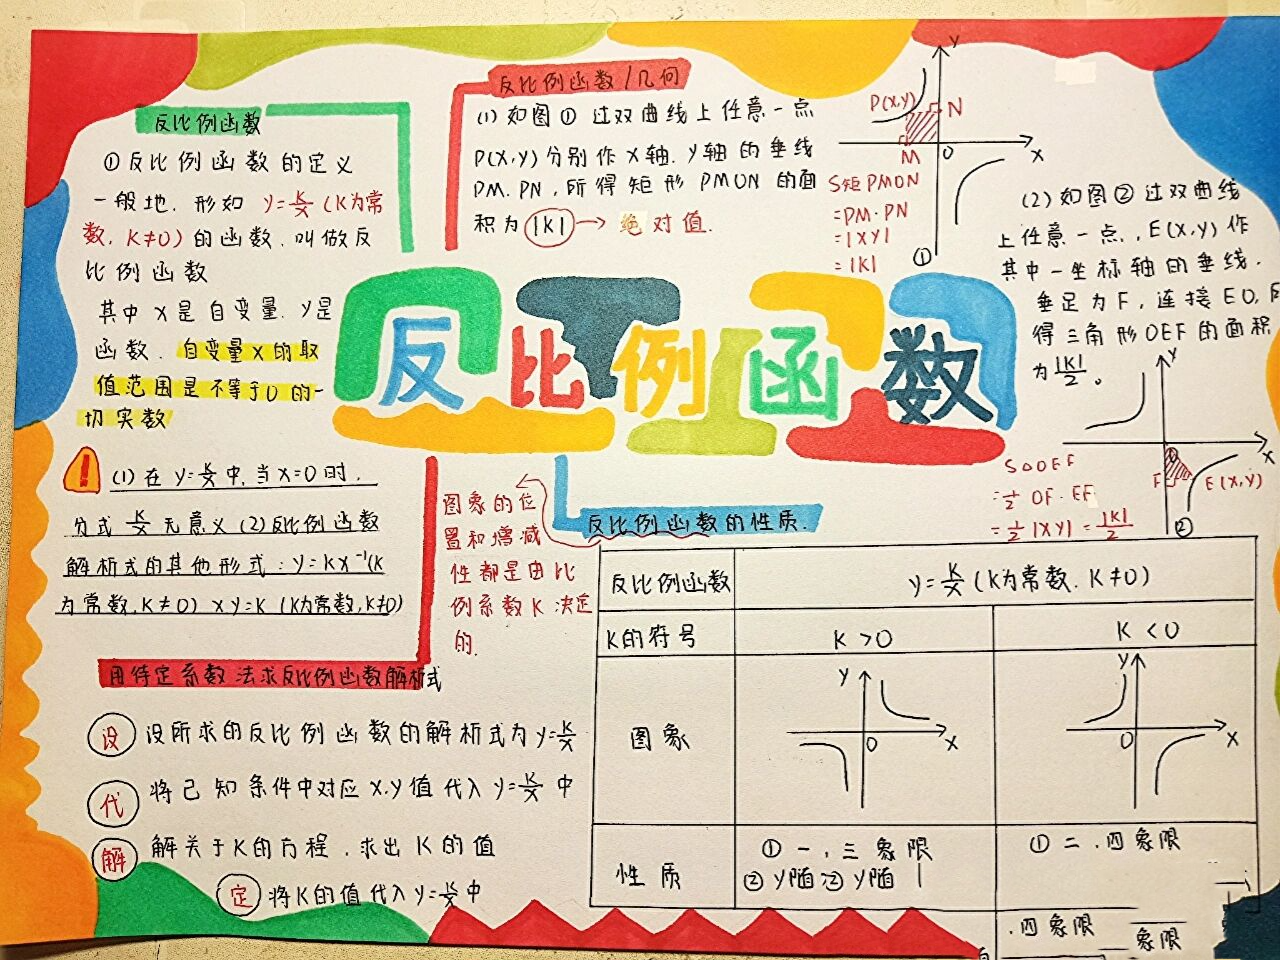 反比例函数
反比例函数
①反比例函数的定义
一般地.形如 y=k/x (K为常
数, K≠0) 的函数.叫做反
比例函数
其中 X是自变量. Y是
函数. 自变量X的取
值范围是不等于0的一
切实数
! (1) 在 y=k/x 中, 当 x=0时,
分式 k/x 无意义 (2)反比例函数
解析式的其他形式: y=Kx⁻¹(K
为常数, K≠0) xy=K (K为常数, K≠0)
反比例函数/几何
(1) 如图① 过双曲线上任意一点
P(X,Y)分别作X轴. Y轴的垂线
PM. PN, 所得矩形 PMON 的面
积为 |K| → 绝对值.
P(X,Y) N
M O X Y
①
S矩PMON
=PM·PN
=|XY|
=|K|
(2) 如图②过双曲线
上任意一点., E(X,Y)作
其中一坐标轴的垂线.
垂足为F, 连接EO,
得三角形OEF的面积
为|K|/2。
Y X O
F E(X,Y)
②
S△OEF
=1/2 OF·EF
=1/2 |XY| = |K|/2
图象的位
置和增减
性都是由比
例系数K决定
的.
反比例函数的性质.
反比例函数 y=k/x (K为常数. K≠0)
K的符号 K>0 K<0
图象 Y O X Y O X
性质 ①一,三象限 ①二.四象限
②Y随 ②Y随
.四象限 象限
用待定系数法求反比例函数解析式
设 设所求的反比例函数的解析式为y=k/x
代 将已知条件中对应X.Y值代入y=k/x中
解 解关于K的方程.求出K的值
定 将K的值代入y=k/x中